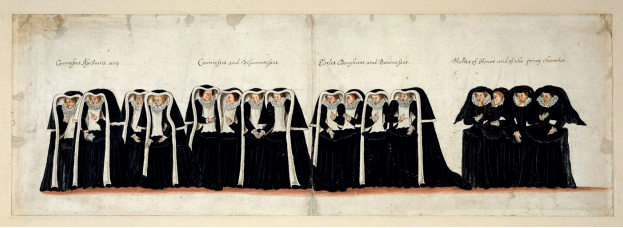 Countesses Assistants
Countesses and Viscountesses
Earles Daughters and Baronesses
Maides of Honor and of the privy chamber